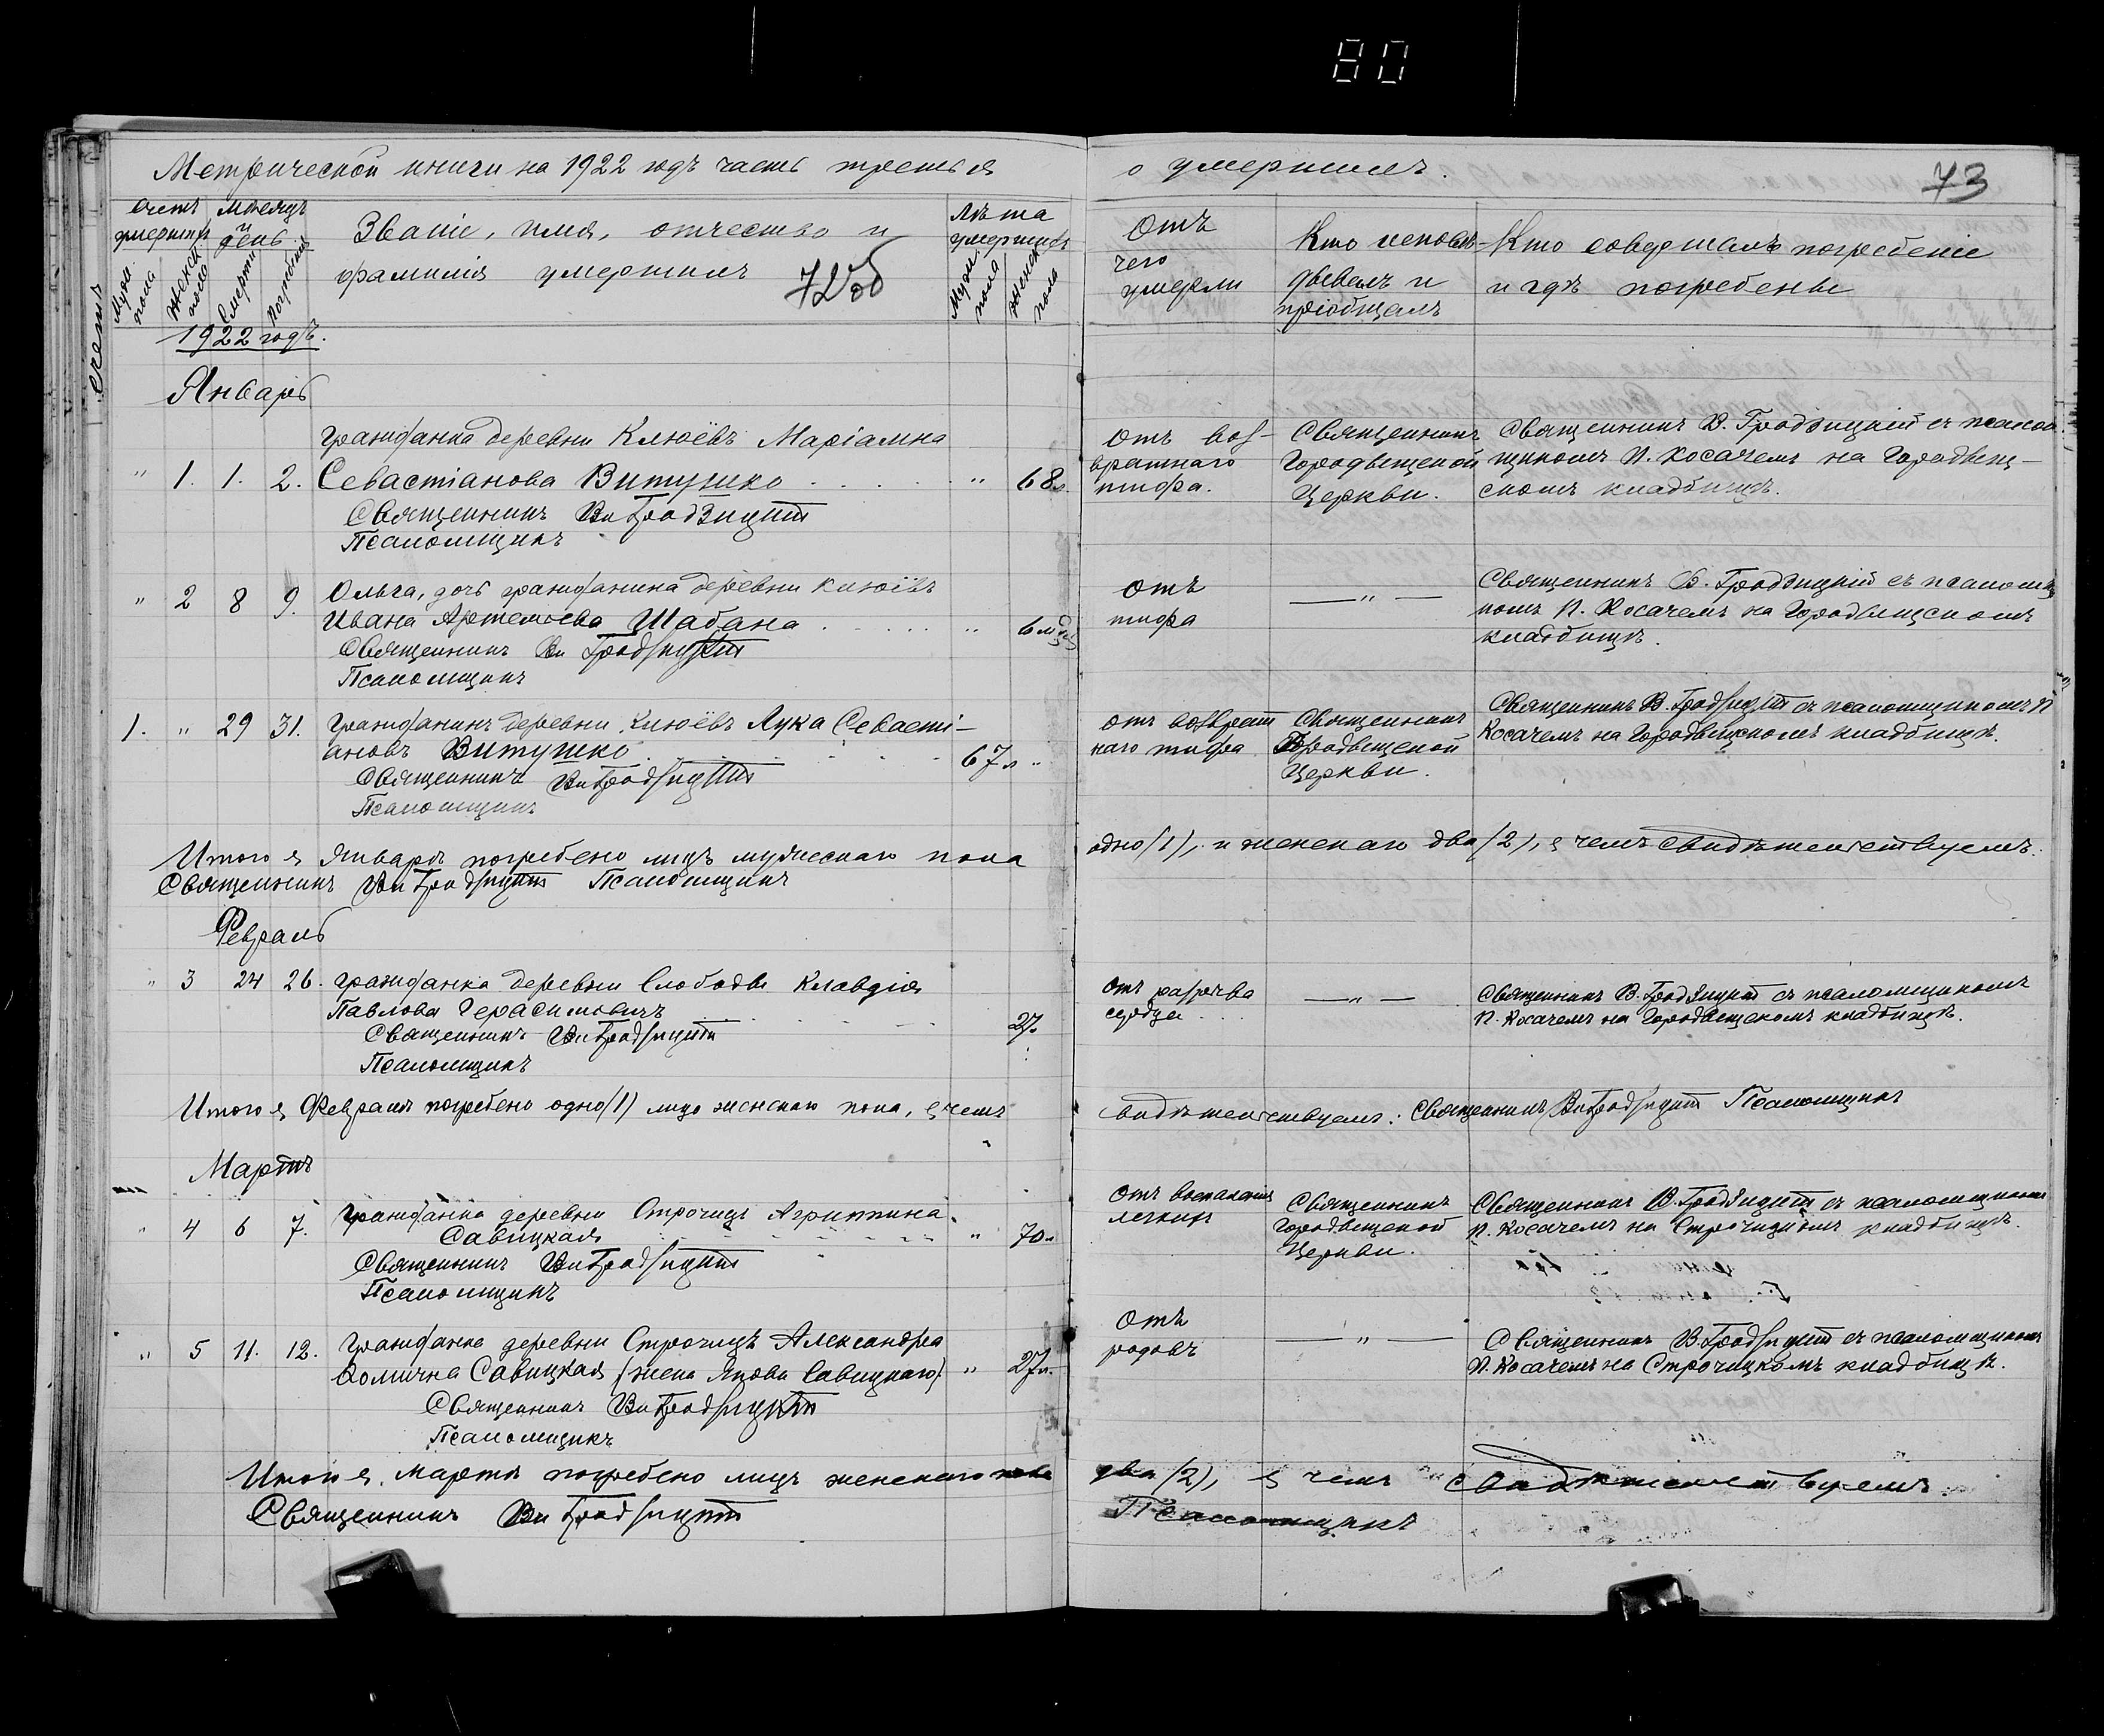 80
Метрической книги на 1922 годъ часть третья
о умершихъ.
73
Счетъ умершихъ
Мужеск. пола
Женск. пола
Мѣсяцъ и день
Смерти
Погребенія
Званіе, имя, отчество и
фамилія умершихъ
72 об
Лѣта умершихъ
Мужеск. пола
Женск. пола
Отъ чего умерли
Кто исповѣ-
дывалъ и
пріобщалъ
Кто совершалъ погребеніе
и гдѣ погребены
1922 годъ.
Январь
" 1. 1. 2.
Гражданка деревни Клюёвъ Маріамна
Севастіанова Витушко . . . . . " 68л.
Священникъ Ви Гродзицкій
Псаломщикъ
Отъ воз-
вратнаго
тифа.
Священникъ
Городищской
Церкви.
Священникъ В. Гродзицкій съ псалом-
щикомъ П. Косачемъ на Городищ-
скомъ кладбищѣ.
" 2 8 9.
Ольга, дочь гражданина деревни Клюёвъ
Ивана Артемьева Шабана . . . . . "
Священникъ Ви Гродзицкій
Псаломщикъ
Отъ
тифа
— " —
Священникъ В. Гродзицкій съ псаломщи
комъ П. Косачемъ на Городищскомъ
кладбищѣ.
1. " 29 31.
Гражданинъ деревни Клюёвъ Лука Севасті-
ановъ Витушко . . . . . 67л "
Священникъ Ви Гродзицкій
Псаломщикъ
Отъ возврат
наго тифа
Священникъ
Городищской
Церкви.
Священникъ В. Гродзицкій съ псаломщикомъ П
Косачемъ на Городищскомъ кладбищѣ.
Итого въ Январѣ погребено лицъ мужескаго пола
одно (1), и женскаго два (2), въ чемъ свидѣтельствуемъ:
Священникъ Ви Гродзицкій Псаломщикъ
Февраль
" 3 24 26.
Гражданка деревни Слободы Клавдія
Павлова Герасимовичъ . . . . . 27.
Священникъ Ви Гродзицкій
Псаломщикъ
Отъ
сердца . . .
— " —
Священникъ В. Гродзицкій съ псаломщикомъ
П. Косачемъ на Городищскомъ кладбищѣ.
Итого въ Февралѣ погребено одно (1) лицо женскаго пола, въ чемъ
свидѣтельствуемъ: Священникъ Ви Гродзицкій Псаломщикъ
Мартъ
" 4 6 7.
Гражданка деревни Строчицъ Агриппина
Савицкая . . . . . " 70л
Священникъ Ви Гродзицкій
Псаломщикъ
Отъ воспаленія
легкихъ
Священникъ
Городищской
Церкви.
Священникъ В. Гродзицкій съ псаломщикомъ
П. Косачемъ на Строчицкомъ кладбищѣ.
" 5 11. 12.
Гражданка деревни Строчицъ Александра
Фомична Савицкая (жена Якова Савицкаго) " 27л.
Священникъ Ви Гродзицкій
Псаломщикъ
Отъ
родовъ
— " —
Священникъ В. Гродзицкій съ псаломщикомъ
П. Косачемъ на Строчицкомъ кладбищѣ.
Итого въ Мартѣ погребено лицъ женскаго пола
два (2), въ чемъ свидѣтельствуемъ:
Священникъ Ви Гродзицкій
Псаломщикъ